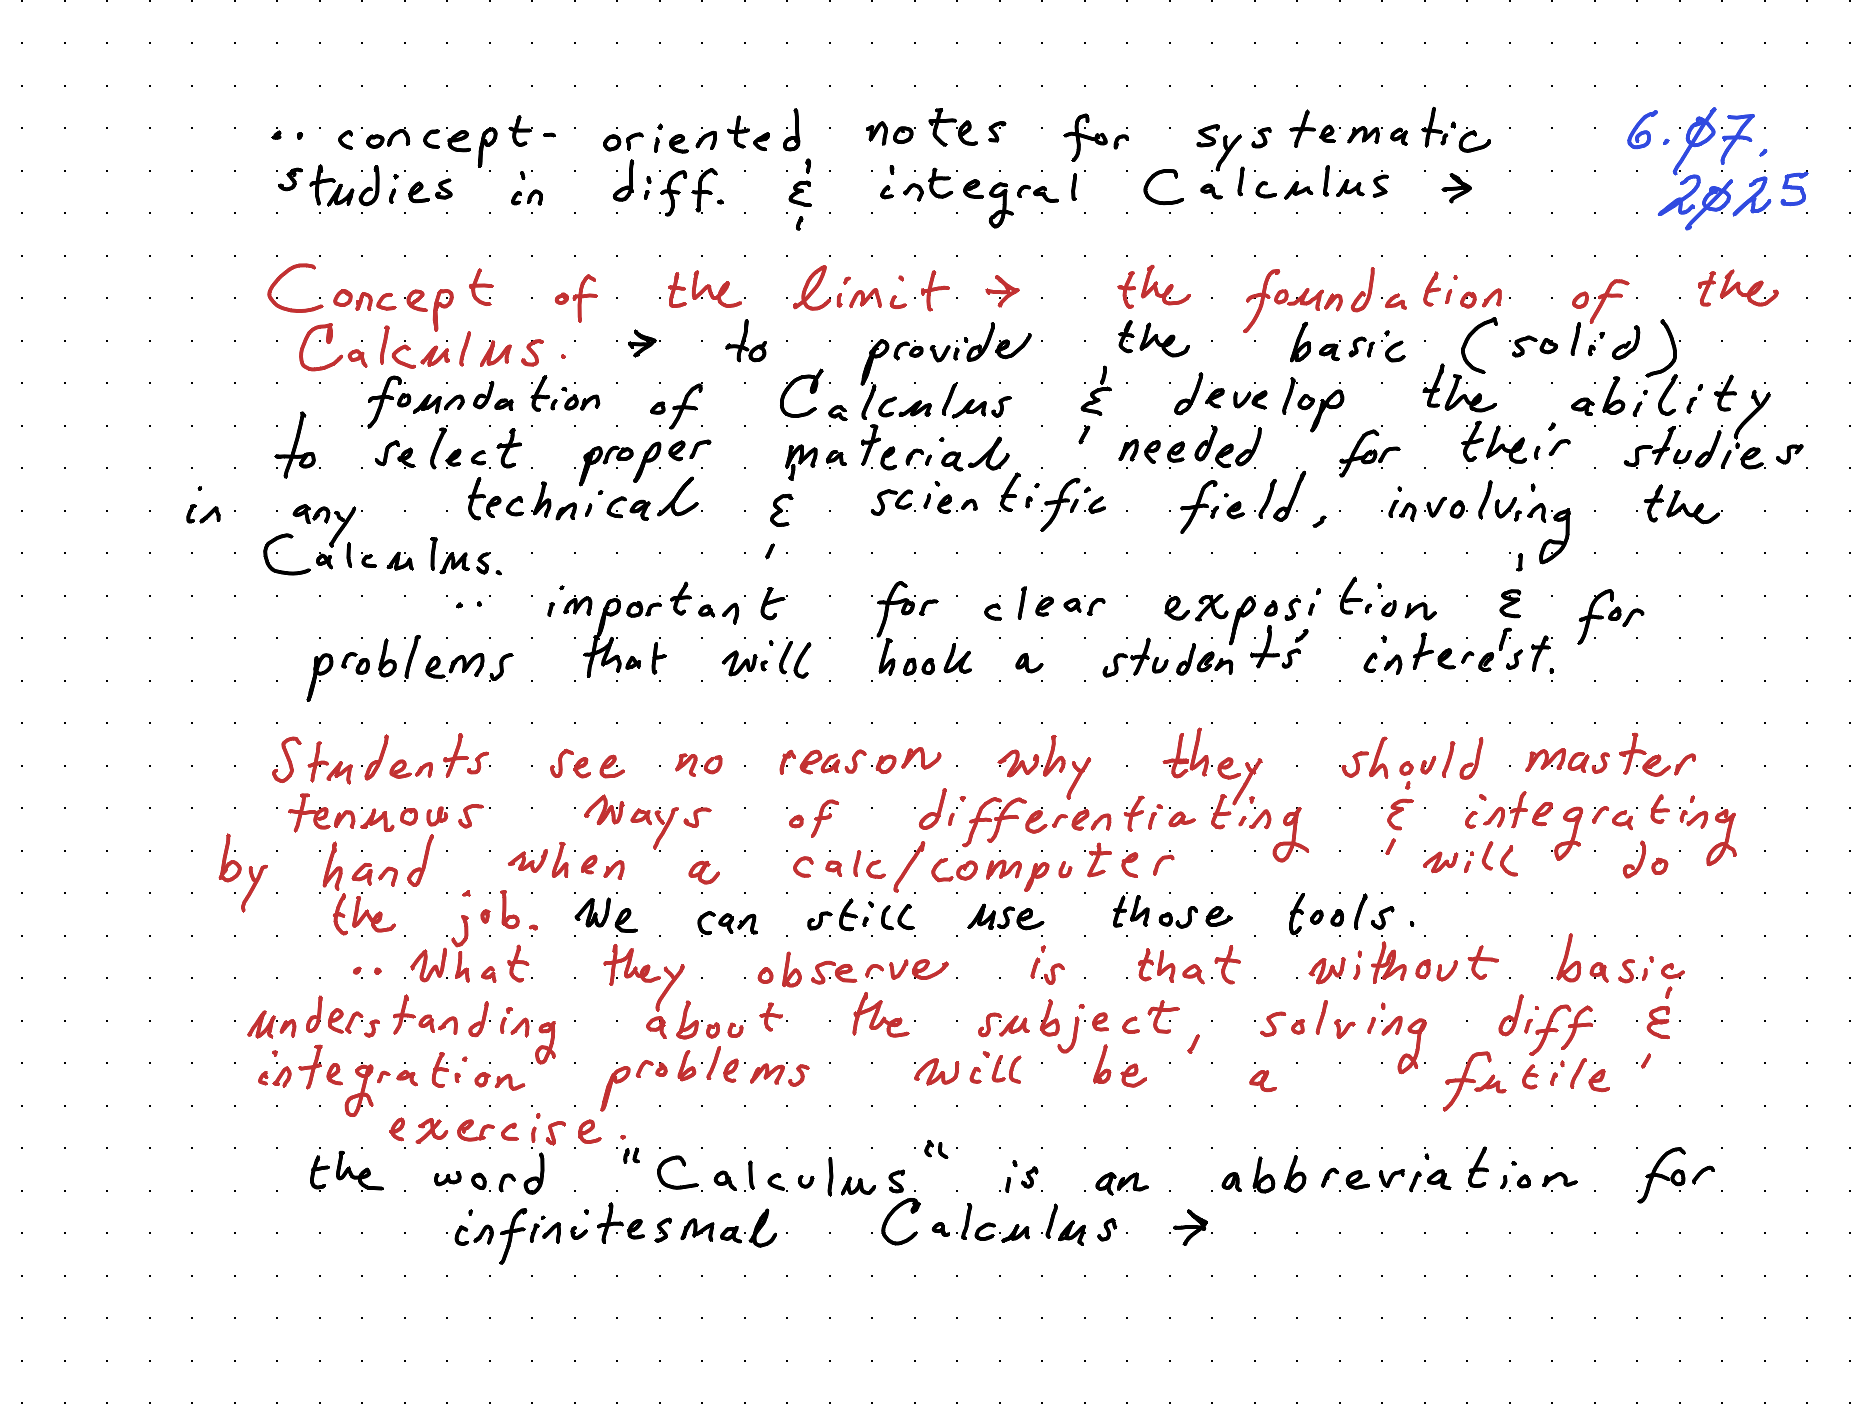 ·· concept- oriented notes for systematic 6.07.
studies in diff. & integral Calculus → 2025
Concept of the limit → the foundation of the
Calculus. → to provide the basic (solid)
foundation of Calculus & develop the ability
to select proper material needed for their studies
in any technical & scientific field, involving the
Calculus.
·· important for clear exposition & for
problems that will hook a students' interest.
Students see no reason why they should master
tenuous ways of differentiating & integrating
by hand when a calc/computer will do
the job. We can still use those tools.
·· What they observe is that without basic
understanding about the subject, solving diff &
integration problems will be a futile
exercise.
the word "Calculus" is an abbreviation for
infinitesmal Calculus →